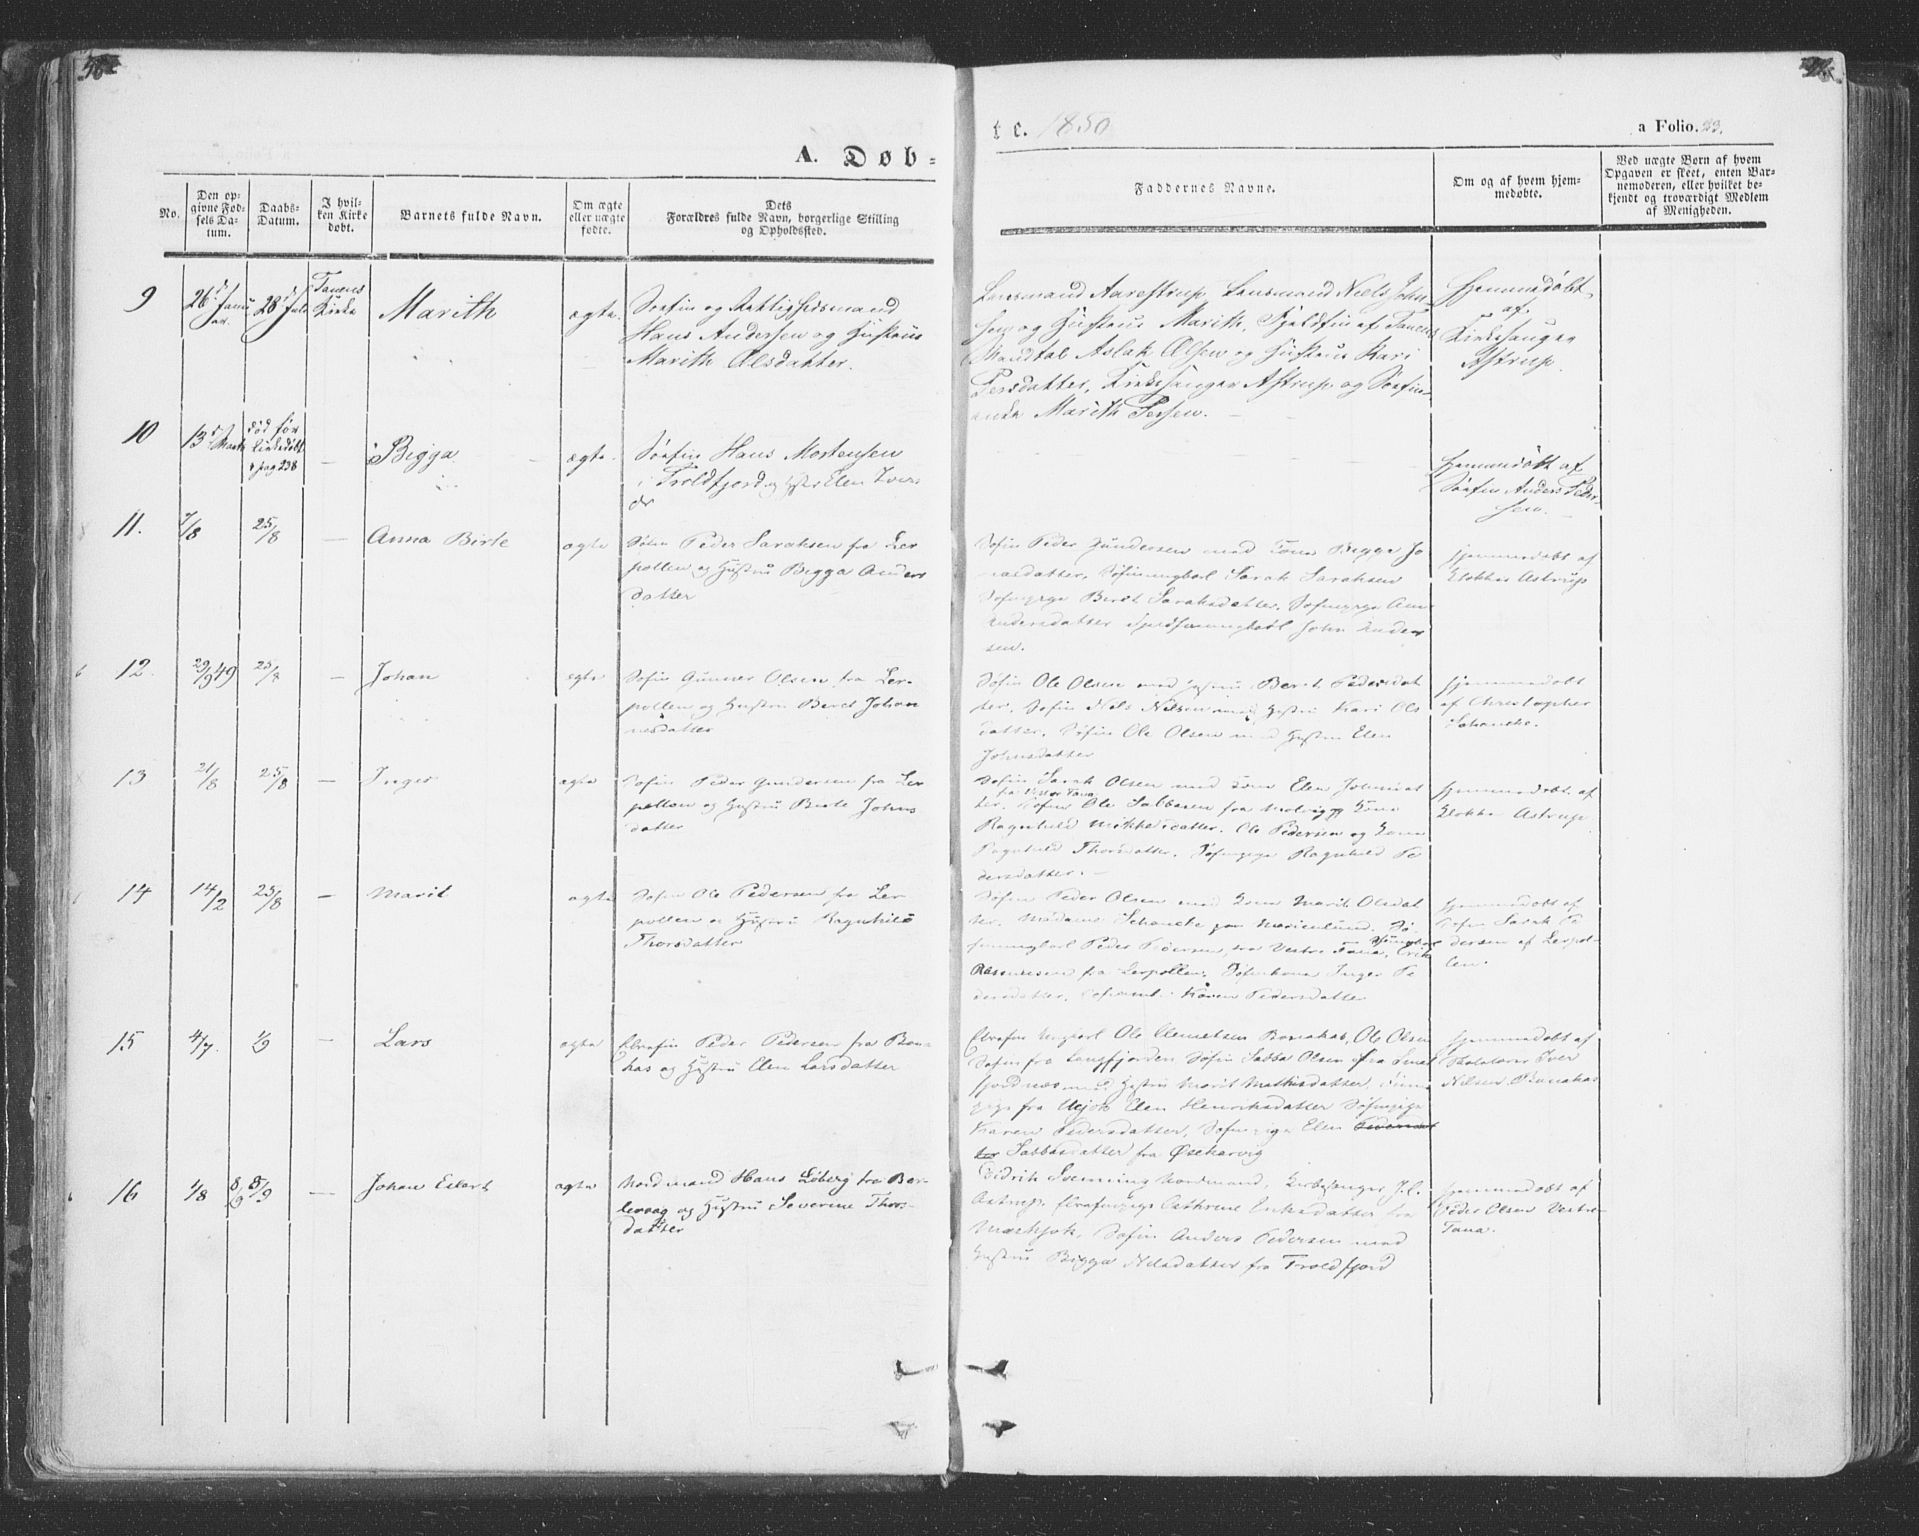 A. Døb-
te. 1850
a Folio. 23.
No.
Den op-
givne Fød-
sels Da-
tum.
Daabs-
Datum.
I hvil-
ken Kirke
døbt.
Barnets fulde Navn.
Om ægte
eller uægte
fødte.
Dets
Forældres fulde Navn, borgerlige Stilling
og Opholdssted.
Faddernes Navne.
Om og af hvem hjem-
medøbte.
Ved uægte Børn af hvem
Opgaven er skeet, enten Bar-
nemoderen, eller hvilket be-
kjendt og troværdigt Medlem
af Menigheden.
9
26 Janu
28 Juli
Tanens
Kirke
Marith
ægte.
Søefin og
Hans Andersen og Hustrue
Marith Olsdatter.
Lensmand Aarestrup, Lensmand Niels John-
sen og Hustrue Marith, Fjeldfin af Tanens
Mandtal Aslak Olsen og Hustrue Kari
Persdatter, Kirkesanger Astrup og Søefin-
enke Marith Persen.
Hjemmedøbt
af
Kirkesanger
Astrup.
10
13 Marts
død før
pag 238
Bigga
ægte.
Søefin Hans Mortensen
i Troldfjord og Elen Iver
dr
Hjemmedøbt af
Søefin Anders Peder-
sen.
11.
7/8
25/8
Anna Birte
ægte
Søfin Peder Saraksen fra Ler
pollen og Hustru Bigga Anders
datter
Søfin Peder Gundersen med Kone Bigga Jo
nasdatter, Søfinungkarl Sarak Saraksen
Søfinpige Beret Saraksdatter, Søfinpige Ann
Andersdatter John Ander
sen.
Hjemmedøbt af
Klokker Astrup
12.
29/9 49
25/8
Johan
ægte
Søfin Gunner Olsen fra Ler-
pollen og Hustru Beret Johan
nesdatter
Søfin Ole Olsen med Hustru Beret Pedersdat
ter, Søfin Nils Nilsen med Hustru Kari Ols
datter, Søfin Ole Olsen med Hustru Elen
Johnsdatter
Hjemmedøbt
af Christopher
Schancke.
13
21/8
25/8
Inger
ægte
Søfin Peder Gundersen fra Ler
pollen og Hustru Birte Johns
datter
Søfin Sarak Olsen med Kone Elen Johnsdat
fra Vester Tana
ter. Søfin Ole Sabbasen fra og Kone
Ragnhild Mikkelsdatter. Ole Pedersen og Kone
Ragnhild Thorsdatter. Søfinpige Ragnhild Pe
dersdatter.
Hjemmedøbt af
Klokker Astrup
14
14/2
25/8
Marit
ægte
Søfin Ole Pedersen fra Ler
pollen og Hustru Ragnhild
Thorsdatter
Søfin Peder Olsen med Kone Marit Olsdat
ter. Madame Schancke paa Mariculund. Sø-
finungkarl Peder Pedersen, fra Vestre Tana, Erik
Rasmusen fra Lerpollen. Søfinkone Inger Pe
dersdatter. Karen Pedersdatter
Hjemmedøbt af
Søfin Sarak Pe
dersen af Lerpol-
len.
15
4/7.
1/9
Lars
ægte
Elvefin Peder Pedersen fra Bon-
kas og Hustru Elen Larsdatter
Elvefin Ungkarl Ole Clemetsen Bonakas, Ole Olsen
Søfin fra Langfjorden Søfin Sabba Olsen fra Smal
fjordnæs med Hustru Marit Mathisdatter,
pige fra Utsjok Elen Henriksdatter Søfinpige
Karen Pedersdatter, Søfinpige Elen
Sabbasdatter fra
Hjemmedøbt af
Skolelærer Iver
Nilsen Bonakas
16
1/8
8/9 8/9
Johan Eilert
ægte
Nordmand Hans Løberg fra Ber-
levaag og Hustru Severine Thors-
datter
Didrik Svenning Nordmand, Kirkesanger J. C.
Astrup, Elvefinpige Cathrine Eriksdatter fra
Maskjok, Søfin Anders Pedersen med
Hustru Bigga Nilsdatter fra Troldfjord
Hjemmedøbt af
Peder Olsen Vestre
Tana.